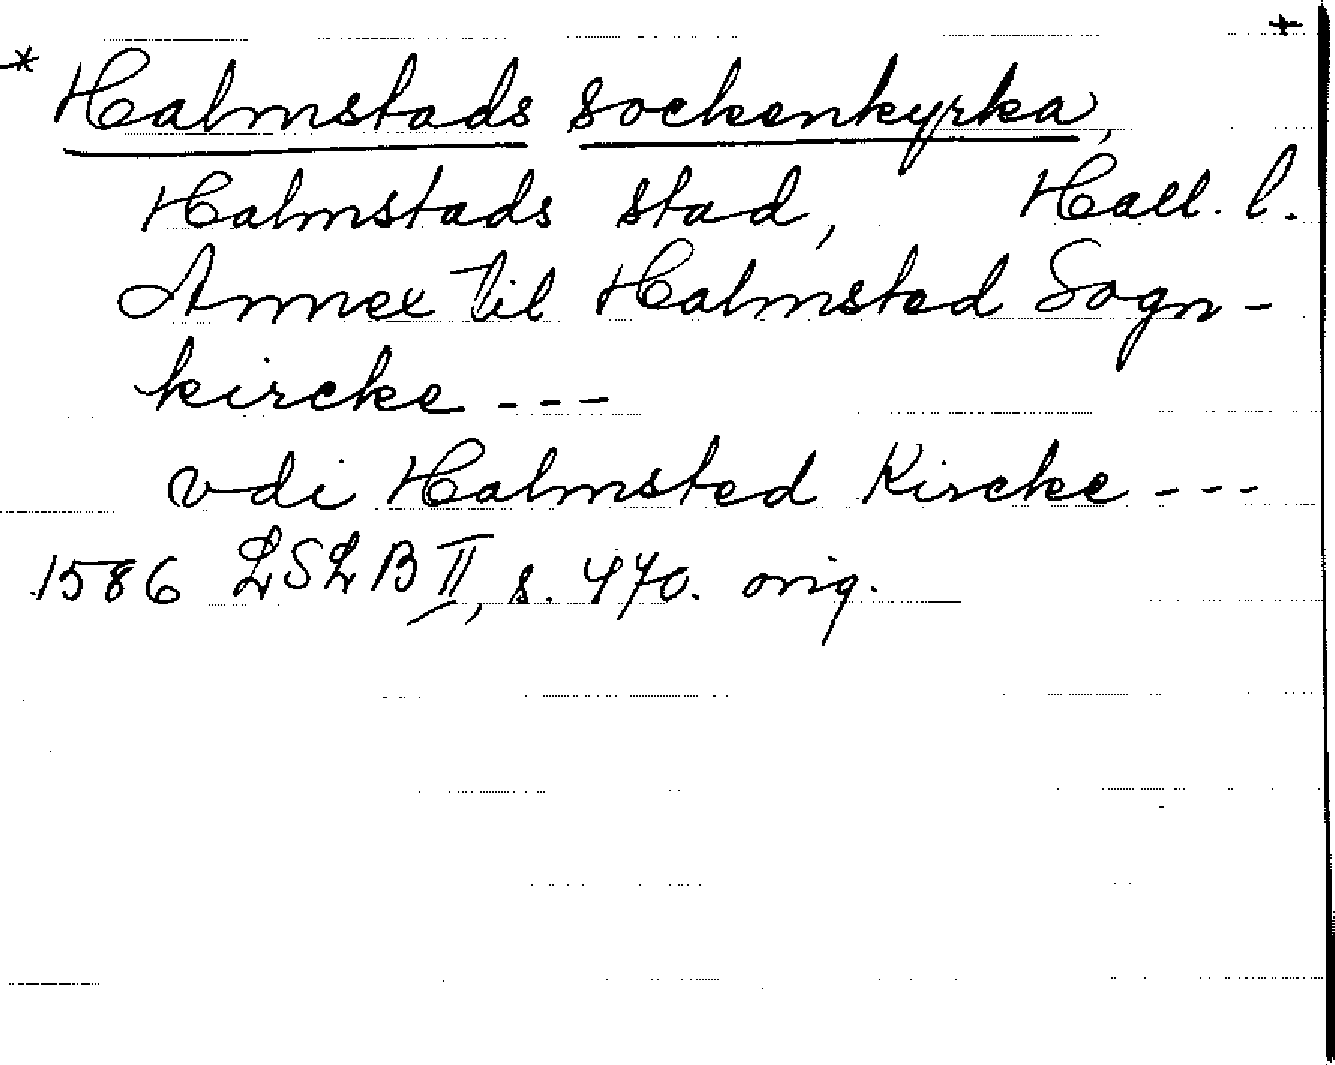 * Halmstads sockenkyrka, +
Halmstads stad, Hall. l.
Annex til Halmsted Sogn-
kircke ---
vdi Halmsted Kircke ---
1586 LSLB II, s. 470. orig.